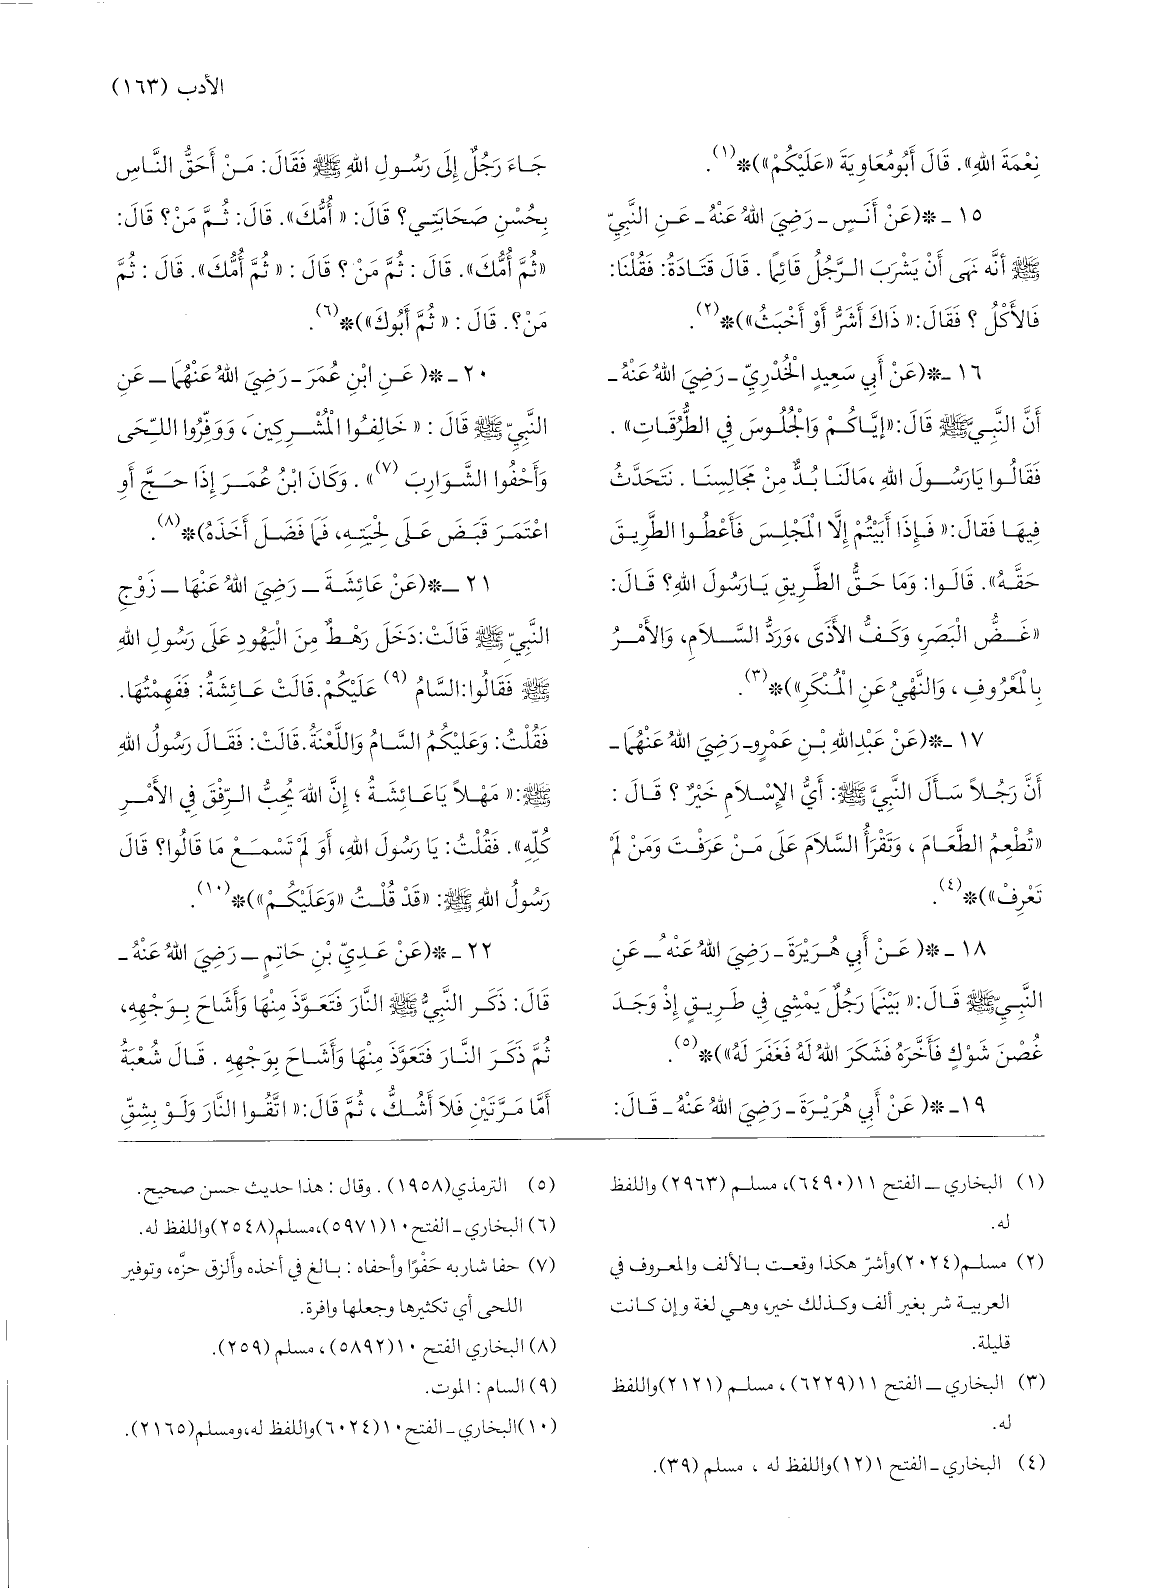 الأدب (١٦٣)
نِعْمَةَ اللهِ». قَالَ أَبُومُعَاوِيَةَ «عَلَيْكُمْ»)*(١).
١٥ ـ *(عَنْ أَنَسٍ ـ رَضِيَ اللهُ عَنْهُ ـ عَنِ النَّبِيِّ
ﷺ أنَّه نَهَى أَنْ يَشْرَبَ الرَّجُلُ قَائِمًا . قَالَ قَتَادَةُ: فَقُلْنَا:
فَالأَكْلُ ؟ فَقَالَ:« ذَاكَ أَشَرُّ أَوْ أَخْبَثُ»)*(٢).
١٦ ـ*(عَنْ أَبِي سَعِيدٍ الْخُدْرِيِّ ـ رَضِيَ اللهُ عَنْهُ ـ
أَنَّ النَّبِيَّ ﷺ قَالَ:«إِيَّاكُمْ وَالْجُلُوسَ فِي الطُّرُقَاتِ» .
فَقَالُوا يَارَسُولَ اللهِ ،مَالَنَا بُدٌّ مِنْ مَجَالِسِنَا . نَتَحَدَّثُ
فِيهَا فَقالَ:« فَإِذَا أَبَيْتُمْ إِلَّا الْمَجْلِسَ فَأَعْطُوا الطَّرِيقَ
حَقَّهُ». قَالُوا: وَمَا حَقُّ الطَّرِيقِ يَارَسُولَ اللهِ؟ قَالَ:
«غَضُّ الْبَصَرِ، وَكَفُّ الأَذَى ،وَرَدُّ السَّلَامِ، وَالأَمْرُ
بِالْمَعْرُوفِ ، وَالنَّهْيُ عَنِ الْمُنْكَرِ»)*(٣).
١٧ ـ*(عَنْ عَبْدِاللهِ بْنِ عَمْرٍو ـ رَضِيَ اللهُ عَنْهُمَا ـ
أَنَّ رَجُلاً سَأَلَ النَّبِيَّ ﷺ: أَيُّ الإِسْلَامِ خَيْرٌ ؟ قَالَ :
«تُطْعِمُ الطَّعَامَ ، وَتَقْرَأُ السَّلاَمَ عَلَى مَنْ عَرَفْتَ وَمَنْ لَمْ
تَعْرِفْ»)*(٤).
١٨ ـ *( عَنْ أَبِي هُرَيْرَةَ ـ رَضِيَ اللهُ عَنْهُ ـ عَنِ
النَّبِيِّ ﷺ قَالَ:« بَيْنَمَا رَجُلٌ يَمْشِي فِي طَرِيقٍ إِذْ وَجَدَ
غُصْنَ شَوْكٍ فَأَخَّرَهُ فَشَكَرَ اللهُ لَهُ فَغَفَرَ لَهُ»)*(٥).
١٩ ـ *( عَنْ أَبِي هُرَيْرَةَ ـ رَضِيَ اللهُ عَنْهُ ـ قَالَ:
جَاءَ رَجُلٌ إِلَى رَسُولِ اللهِ ﷺ فَقَالَ: مَنْ أَحَقُّ النَّاسِ
بِحُسْنِ صَحَابَتِي؟ قَالَ: « أُمُّكَ». قَالَ: ثُمَّ مَنْ؟ قَالَ:
«ثُمَّ أُمُّكَ». قَالَ : ثُمَّ مَنْ ؟ قَالَ : « ثُمَّ أُمُّكَ». قَالَ : ثُمَّ
مَنْ؟. قَالَ : « ثُمَّ أَبُوكَ»)*(٦).
٢٠ ـ*( عَنِ ابْنِ عُمَرَ ـ رَضِيَ اللهُ عَنْهُمَا ـ عَنِ
النَّبِيِّ ﷺ قَالَ : « خَالِفُوا الْمُشْرِكِينَ، وَوَفِّرُوا اللِّحَى
وَأَحْفُوا الشَّوَارِبَ(٧)» . وَكَانَ ابْنُ عُمَرَ إِذَا حَجَّ أَوِ
اعْتَمَرَ قَبَضَ عَلَى لِحْيَتِهِ، فَمَا فَضَلَ أَخَذَهُ)*(٨).
٢١ ـ*(عَنْ عَائِشَةَ ـ رَضِيَ اللهُ عَنْهَا ـ زَوْجِ
النَّبِيِّ ﷺ قَالَتْ:دَخَلَ رَهْطٌ مِنَ الْيَهُودِ عَلَى رَسُولِ اللهِ
ﷺ فَقَالُوا:السَّامُ(٩) عَلَيْكُمْ.قَالَتْ عَائِشَةُ: فَفَهِمْتُهَا.
فَقُلْتُ: وَعَلَيْكُمُ السَّامُ وَاللَّعْنَةُ.قَالَتْ: فَقَالَ رَسُولُ اللهِ
ﷺ:« مَهْلاً يَاعَائِشَةُ ؛ إِنَّ اللهَ يُحِبُّ الرِّفْقَ فِي الأَمْرِ
كُلِّهِ». فَقُلْتُ: يَا رَسُولَ اللهِ، أَوَ لَمْ تَسْمَعْ مَا قَالُوا؟ قَالَ
رَسُولُ اللهِ ﷺ: «قَدْ قُلْتُ «وَعَلَيْكُمْ»)*(١٠).
٢٢ ـ *(عَنْ عَدِيِّ بْنِ حَاتِمٍ ـ رَضِيَ اللهُ عَنْهُ ـ
قَالَ: ذَكَرَ النَّبِيُّ ﷺ النَّارَ فَتَعَوَّذَ مِنْهَا وَأَشَاحَ بِوَجْهِهِ،
ثُمَّ ذَكَرَ النَّارَ فَتَعَوَّذَ مِنْهَا وَأَشَاحَ بِوَجْهِهِ . قَالَ شُعْبَةُ
أَمَّا مَرَّتَيْنِ فَلاَ أَشُكُّ ، ثُمَّ قَالَ:« اتَّقُوا النَّارَ وَلَوْ بِشِقِّ
(١) البخاري ـ الفتح ١١(٦٤٩٠)، مسلم (٢٩٦٣) واللفظ
له.
(٢) مسلم(٢٠٢٤)وأشرّ هكذا وقعت بالألف والمعروف في
العربية شر بغير ألف وكذلك خير، وهي لغة وإن كانت
قليلة.
(٣) البخاري ـ الفتح ١١(٦٢٢٩) ، مسلم (٢١٢١)واللفظ
له.
(٤) البخاري ـ الفتح ١(١٢)واللفظ له ، مسلم (٣٩).
(٥) الترمذي(١٩٥٨) . وقال : هذا حديث حسن صحيح.
(٦) البخاري ـ الفتح١٠(٥٩٧١)،مسلم(٢٥٤٨)واللفظ له.
(٧) حفا شاربه حَفْوًا وأحفاه : بالغ في أخذه وألزق حزَّه، وتوفير
اللحى أي تكثيرها وجعلها وافرة.
(٨) البخاري الفتح ١٠(٥٨٩٢) ، مسلم (٢٥٩).
(٩) السام : الموت.
(١٠)البخاري ـ الفتح١٠(٦٠٢٤)واللفظ له،ومسلم(٢١٦٥).